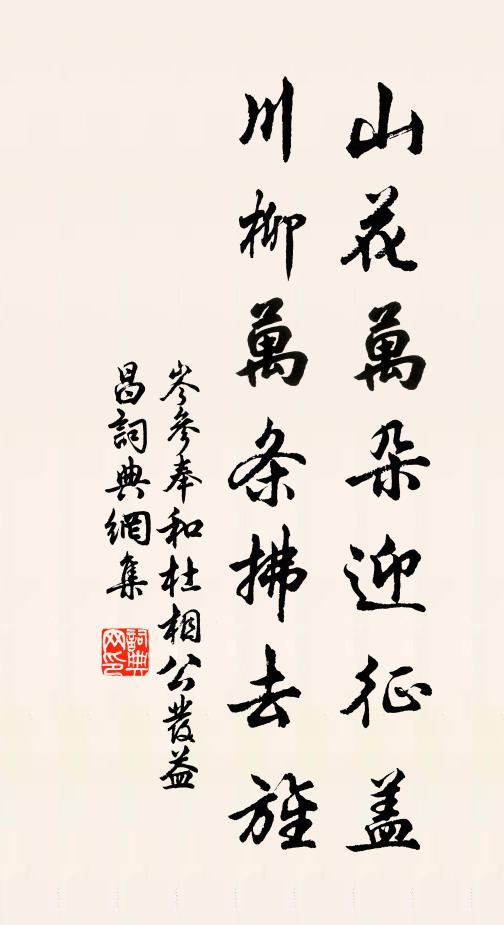 山花萬朵迎征盖
川柳萬条拂去旌
岑参奉和杜相公發益
昌詞典網集
詞典网印